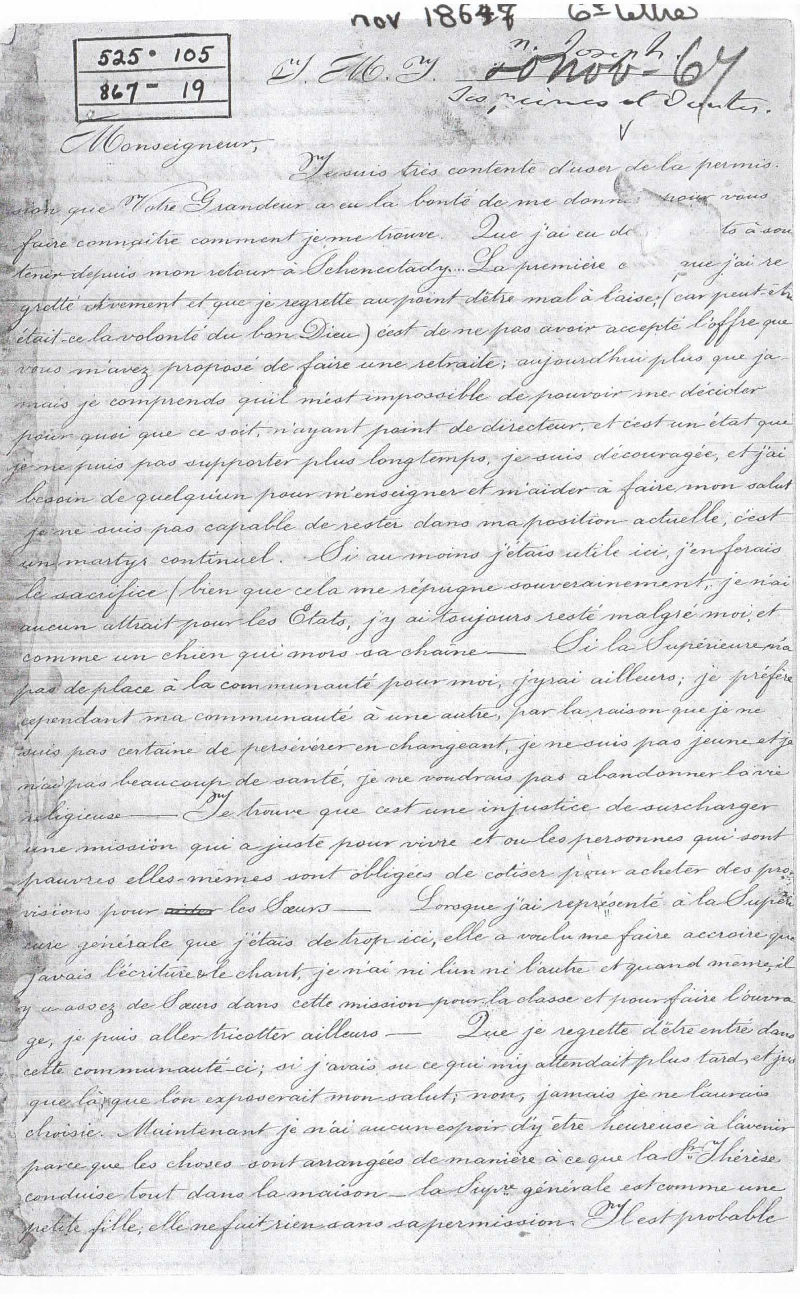 nov 1867 6e lettre
525 • 105
867 - 19
J. M. J. Sr. Joseph.
nov - 67
Ses peines et Doutes.
Monseigneur,
Je suis très contente d'user de la permis-
sion que Votre Grandeur a eu la bonté de me donner pour vous
faire connaître comment je me trouve. Que j'ai eu de ts à sou
tenir depuis mon retour à Schenectady... La première que j'ai re
gretté vivement et que je regrette au point d'être mal à l'aise; (car peut-être
était-ce la volonté du bon Dieu) c'est de ne pas avoir accepté l'offre que
vous m'avez proposé de faire une retraite; aujourd'hui plus que ja-
mais je comprends qu'il m'est impossible de pouvoir me décider
pour quoi que ce soit, n'ayant point de directeur, et c'est un état que
je ne puis pas supporter plus longtemps, je suis découragée, et j'ai
besoin de quelqu'un pour m'enseigner et m'aider à faire mon salut
je ne suis pas capable de rester dans ma position actuelle, c'est
un martyr continuel. Si au moins j'étais utile ici, j'en ferais
le sacrifice (bien que cela me répugne souverainement, je n'ai
aucun attrait pour les Etats, j'y ai toujours resté malgré moi, et
comme un chien qui mors sa chaine — Si la Supérieure n'a
pas de place à la communauté pour moi, j'yrai ailleurs; je préfère
cependant ma communauté à une autre, par la raison que je ne
suis pas certaine de persévérer en changeant, je ne suis pas jeune et je
n'ai pas beaucoup de santé, je ne voudrais pas abandonner la vie
religieuse — Je trouve que c'est une injustice de surcharger
une mission qui a juste pour vivre et ou les personnes qui sont
pauvres elles-mêmes sont obligées de cotiser pour acheter des pro-
visions pour les Sœurs — Lorsque j'ai représenté à la Supéri
eure générale que j'étais de trop ici, elle a voulu me faire accroire que
j'avais l'écriture & le chant, je n'ai ni l'un ni l'autre et quand même, il
y a assez de Sœurs dans cette mission pour la classe et pour faire l'ouvra
ge, je puis aller tricotter ailleurs — Que je regrette d'être entré dans
cette communauté-ci; si j'avais su ce qui m'y attendait plus tard, et jus
que là, que l'on exposerait mon salut; non, jamais je ne l'aurais
choisie. Maintenant je n'ai aucun espoir d'y être heureuse à l'avenir
parce que les choses sont arrangées de manière à ce que la Sr. Thérèse
conduise tout dans la maison — la Supre générale est comme une
petite fille, elle ne fait rien sans sa permission. Il est probable